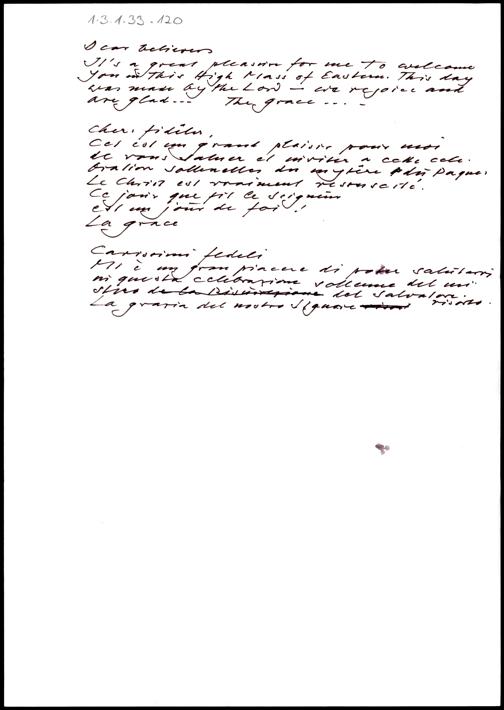 1.3.1.33.-120
Dear believers
It's a great pleasure for me to welcome
you in this High Mass of Eastern. This day
was made by the Lord – we rejoice and
are glad... The grace....
Chers fidèles,
Cet est un grand plaisir pour moi
de vous saluer et inviter a cette cele-
bration sollenelles du mystère du Paques
Le Christ est vraiment resuscité.
Ce jour que fit le Seigneur
est un jour de foi!
La grace
Carissimi fedeli
Mi è un gran piacere di poter salutarvi
in questa celebrazione sollenne del mi
stero de la Risurrezione del Salvatore.
La grazia del nostro Signore risorto.